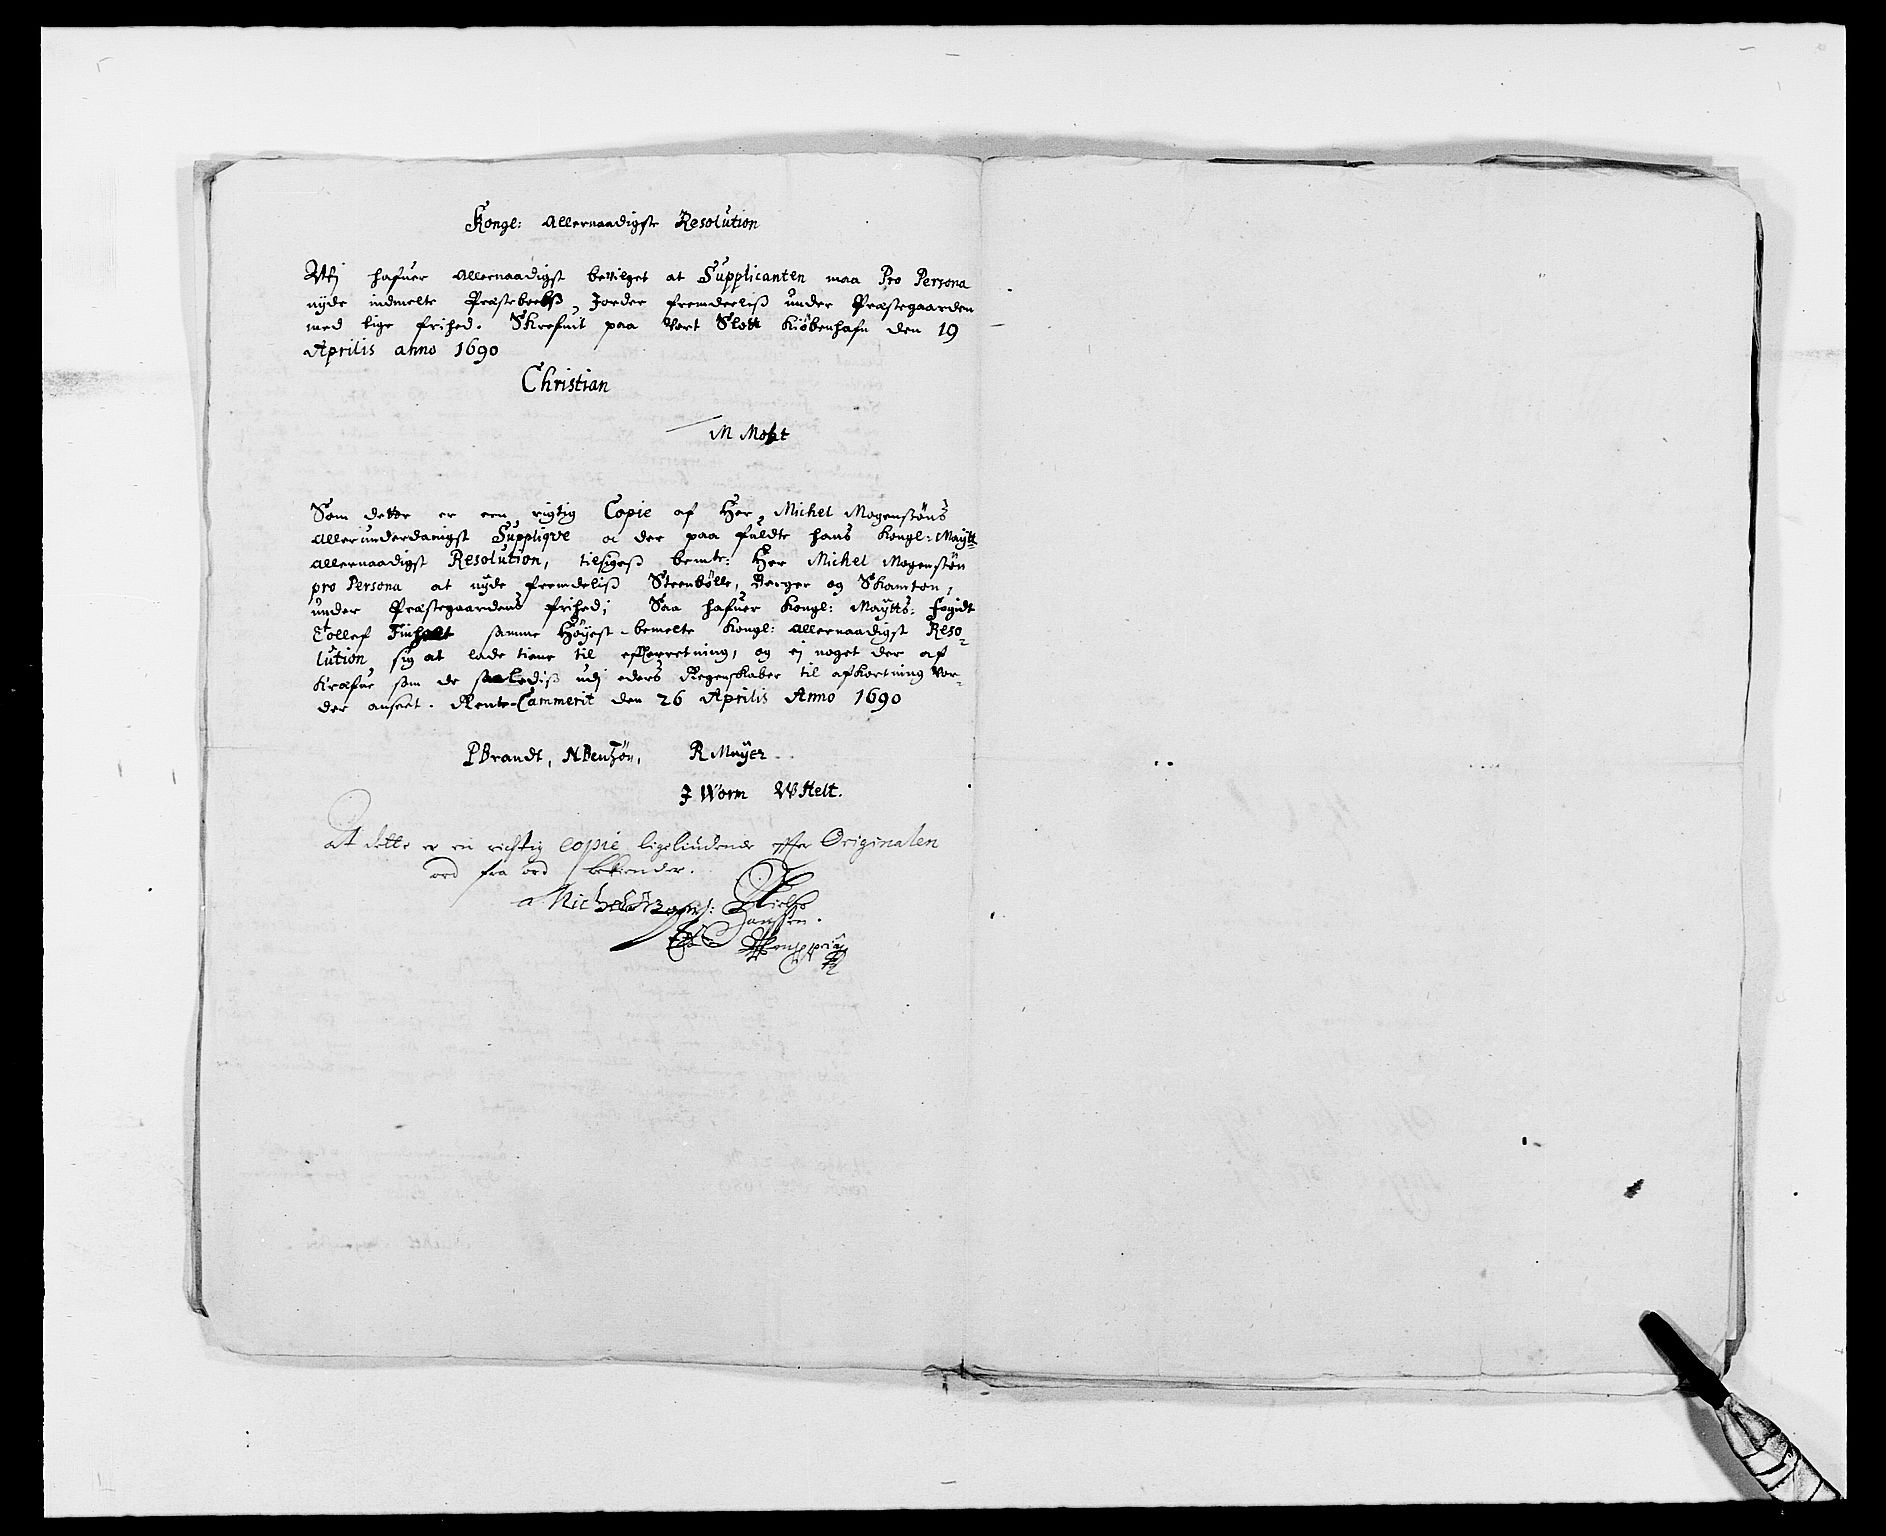 Kongl: Allernaadigste Resolution
Wij hafuer Allernaadigst bevilget at Supplicanten maa Pro Persona
nyde indmelte Præstebools Jorder fremdeelis under Præstegaarden
med lige frihed. Skrefuit paa Vort Slott Kiøbenhafn den 19
Aprilis anno 1690
Christian
M Moht
Som dette er een rigtig Copie af Her Michel Mogensøns
Allerunderdanigst Suppliqve oc der paa fuldte hans Kongl: Maytts
allernaadigst Resolution, tilsiges bemte: Her Michel Mogensøn
pro Persona at nyde fremdelis Steenbølle, Berger og Skamton,
under Præstegaardens frihed; Saa hafuer Kongl: Maytts: fogidt
Tollef samme Høyest-bemelte Kongl: Allernaadigst Reso-
lution, sig at lade tiene til efterretning, og ej noget der af
Kræfue som de saaledis udj eders Regenskaber til afkortning Vor-
der anseet. Rente-Cammerit den 26 Aprilis Anno 1690
P Brandt, N Benzøn, R Mayer
J Worm W Helt.
At dette er en richtig copie ligelindende effter Originalen
ord fra ord bekiender.
Niels
Hanssen.